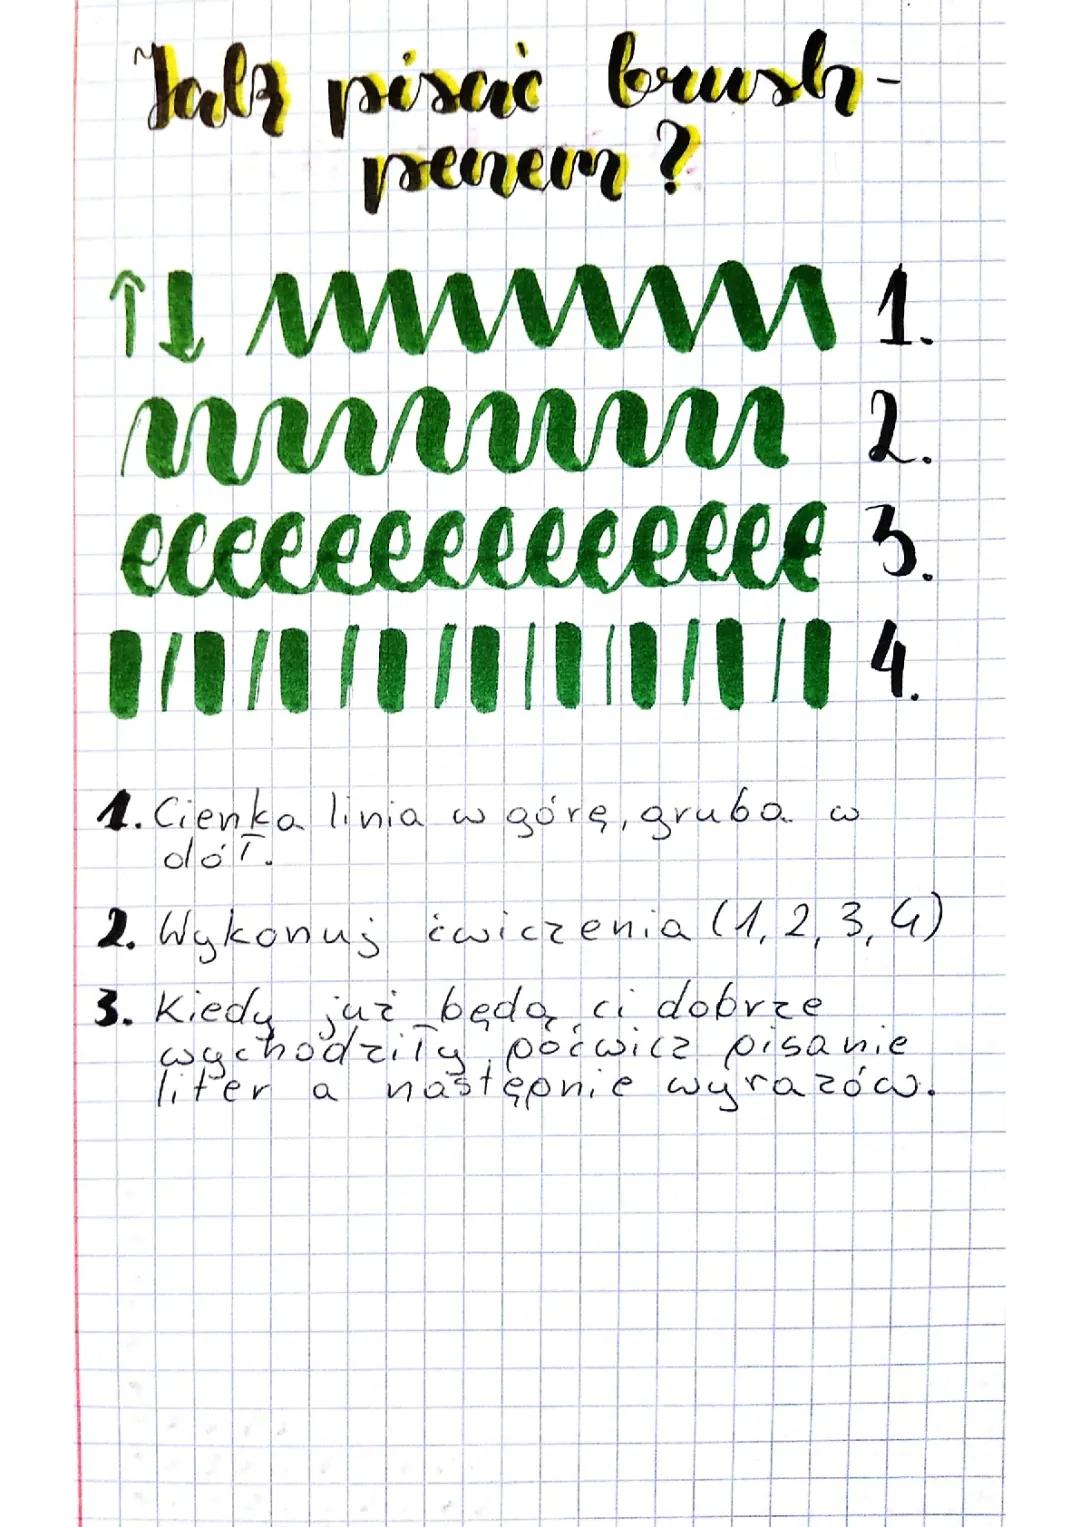 Jak pisać brush-
penem?
1.
2.
3.
4.
1. Cienka linia w górę, gruba w
dół.
2. Wykonuj ćwiczenia (1, 2, 3, 4)
3. Kiedy już będą ci dobrze
wychodziły, poćwicz pisanie
liter a następnie wyrazów.